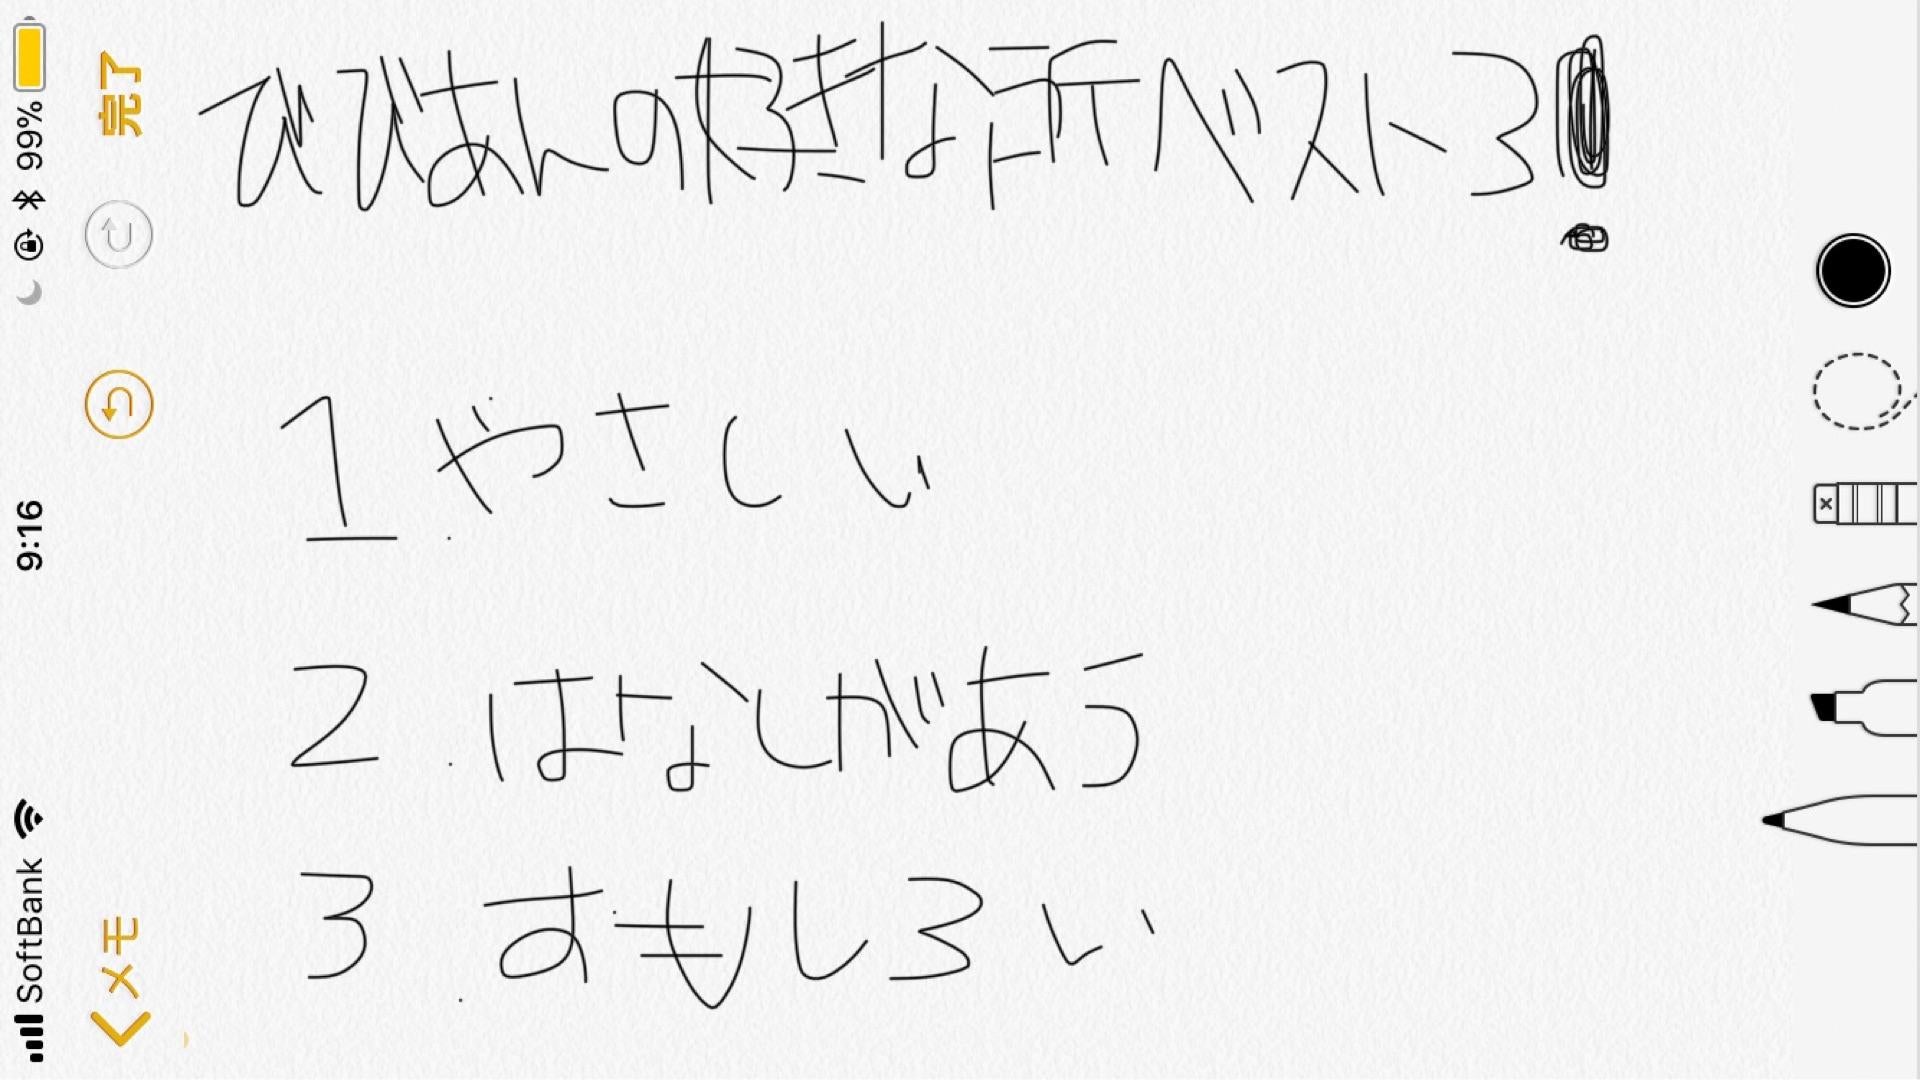 びびあんの好きな所ベスト3!
1 やさしい
2 はなしがあう
3 おもしろい
完了
99%
9:16
SoftBank
メモ